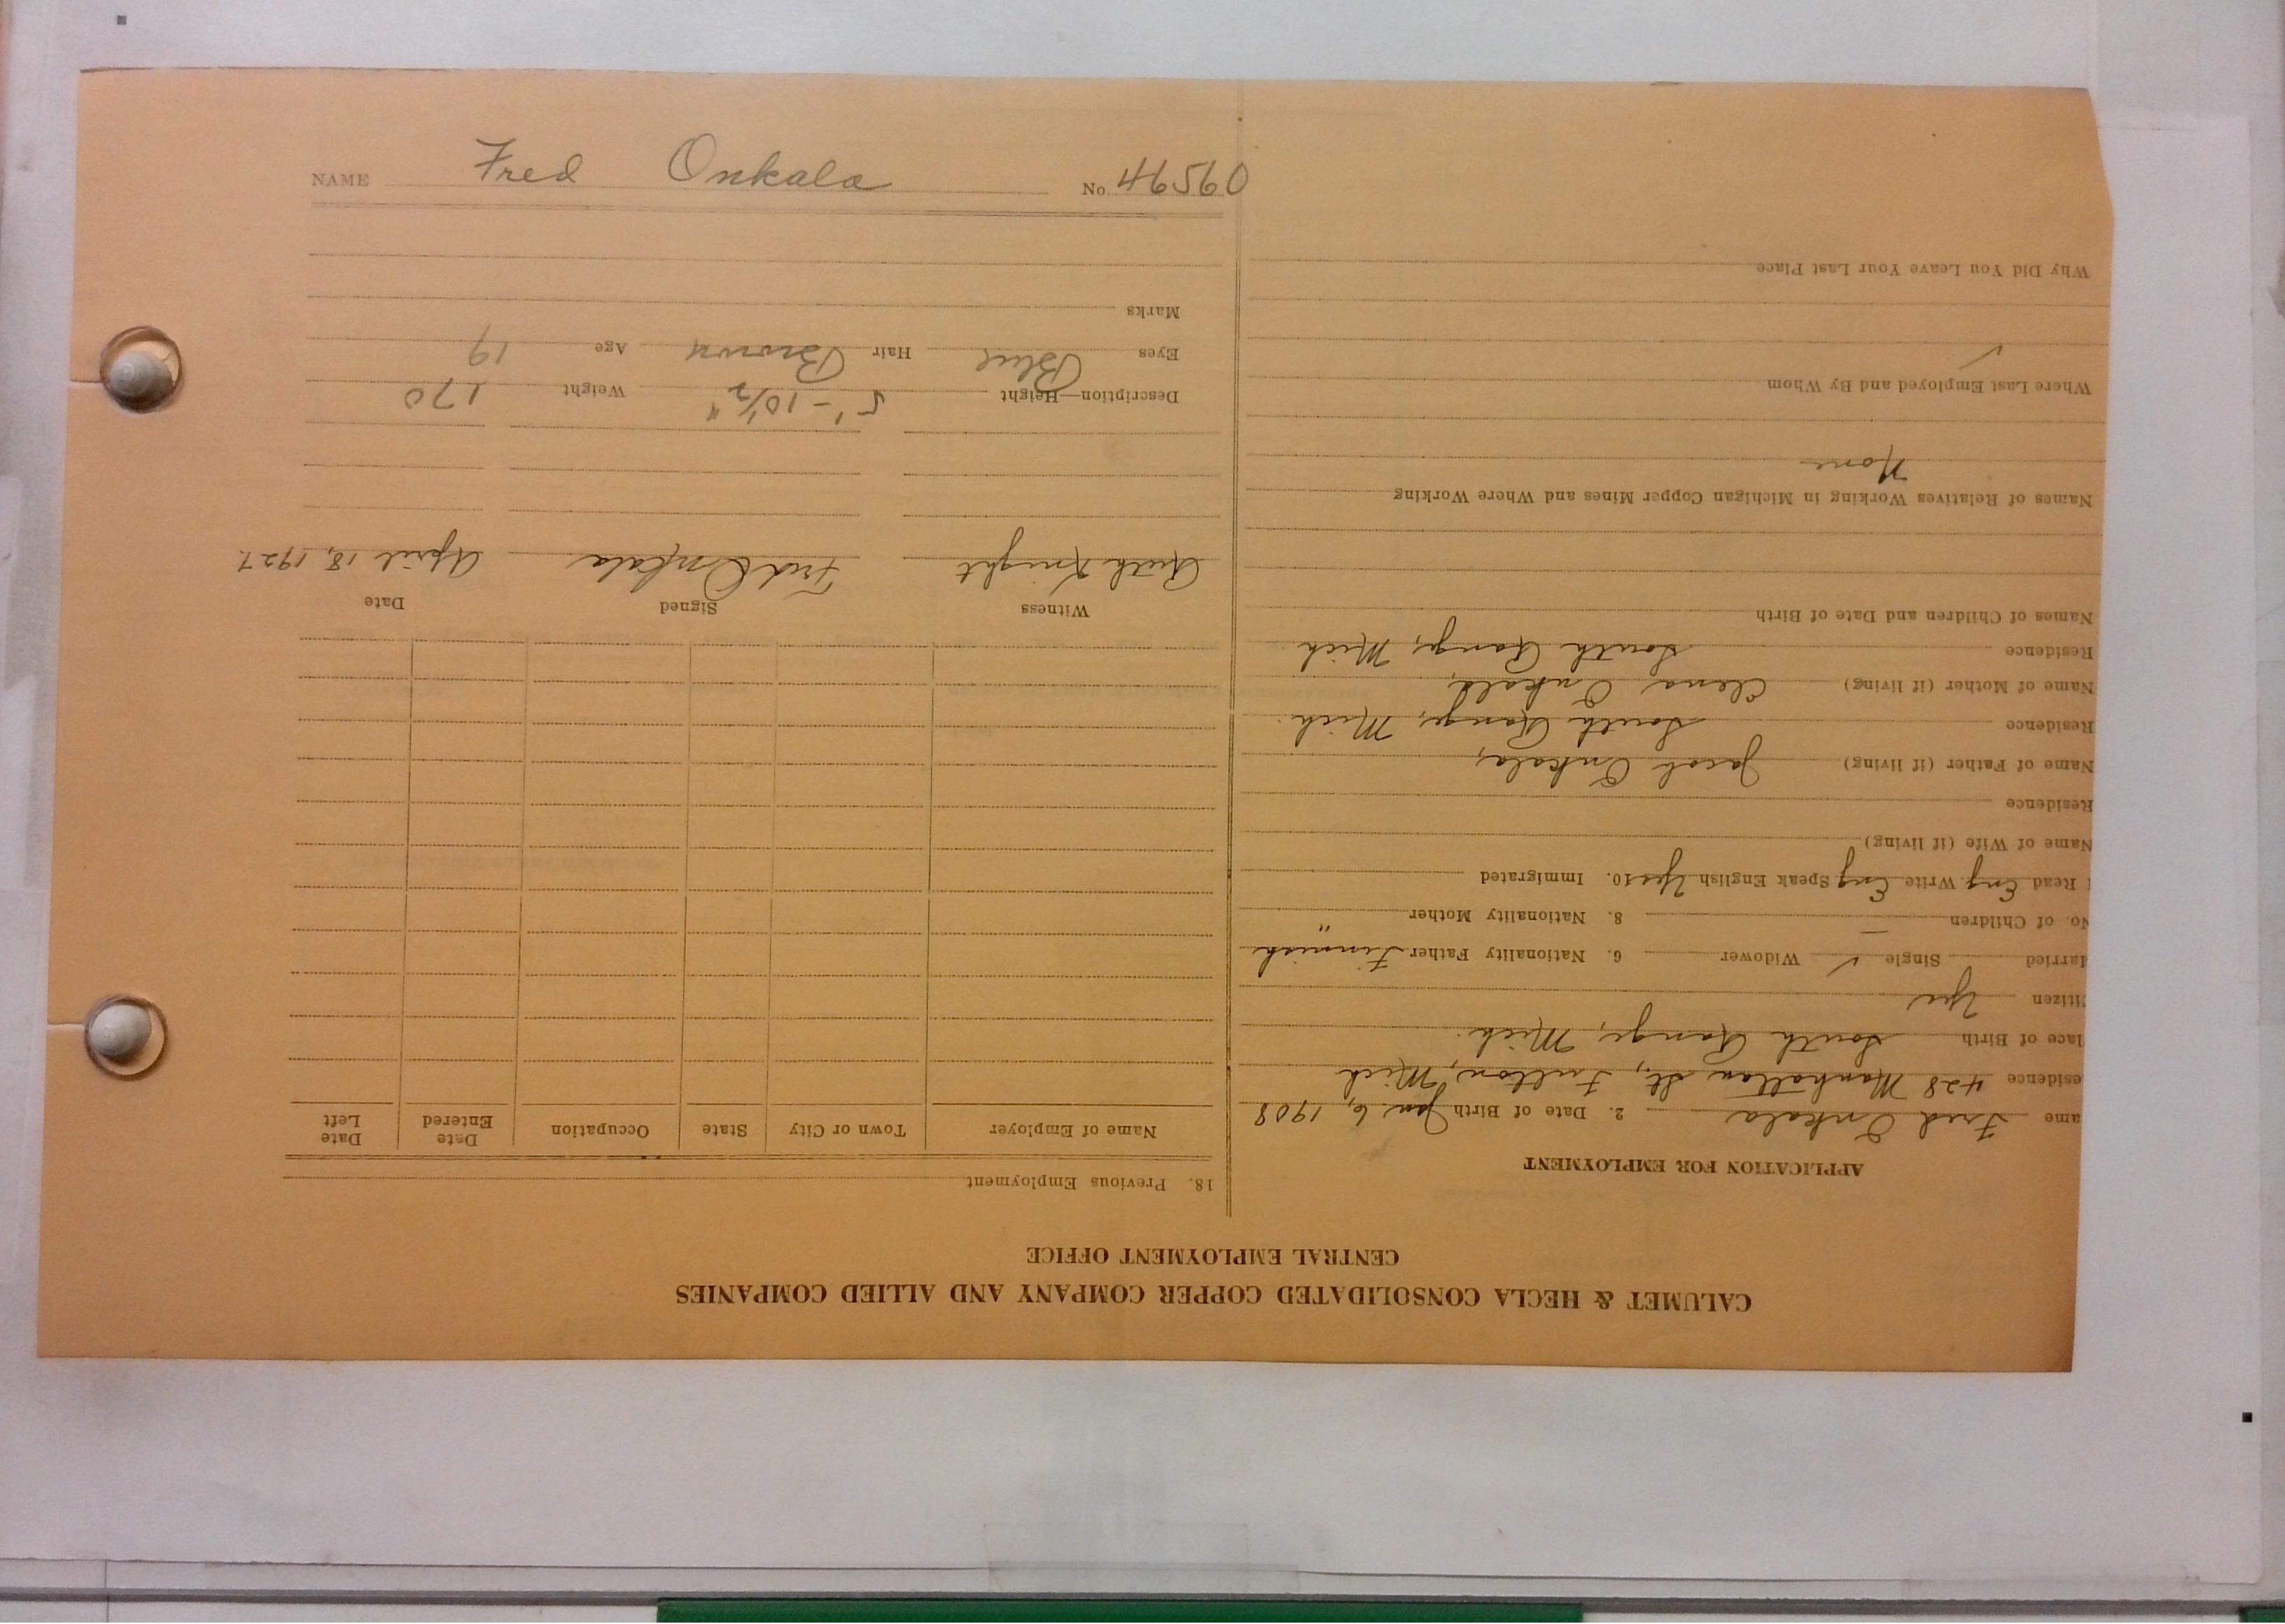 NAME Fred Onkala No 46560
CALUMET & HECLA CONSOLIDATED COPPER COMPANY AND ALLIED COMPANIES
CENTRAL EMPLOYMENT OFFICE
APPLICATION FOR EMPLOYMENT
ame Fred Onkala 2. Date of Birth Jan. 6, 1908
esidence 428 Manhattan St., Fulton, Mich
lace of Birth South Range, Mich.
itizen Yes
arried Single ✓ Widower 6. Nationality Father Finnish
No. of Children — 8. Nationality Mother "
Read Eng Write Eng Speak English Yes 10. Immigrated
Name of Wife (if living)
Residence
Name of Father (if living) Jacob Onkala,
Residence South Range, Mich
Name of Mother (if living) Elena Onkala,
Residence South Range, Mich
Names of Children and Date of Birth
Names of Relatives Working in Michigan Copper Mines and Where Working
None
Where Last Employed and By Whom
✓
Why Did You Leave Your Last Place
18. Previous Employment
Name of Employer Town or City State Occupation Date Entered Date Left
Witness Signed Date
Ruth Knight Fred Onkala April 18, 1927.
Description—Height 5'-10½" Weight 170
Eyes Blue Hair Brown Age 19
Marks